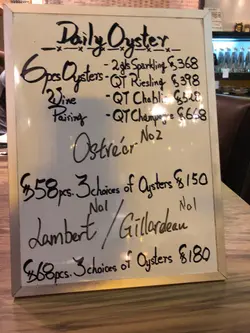 Daily Oyster
6pcs Oysters - 2gls Sparkling $368
- QT Riesling $398
Wine - QT Chablis
Pairing - QT Champagne
Ostréor No2
$58pcs. 3 choices of Oysters $150
Lambert No1 / Gillardeau No1
$68pcs. 3 choices of Oysters $180